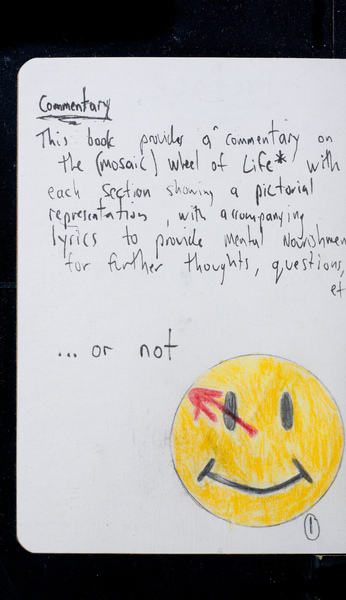 Commentary
This book provides a commentary on
the (mosaic) Wheel of Life* with
each section showing a pictorial
representation, with accompanying
lyrics to provide Mental Nourishmen
for further thoughts, questions,
et
... or not
1